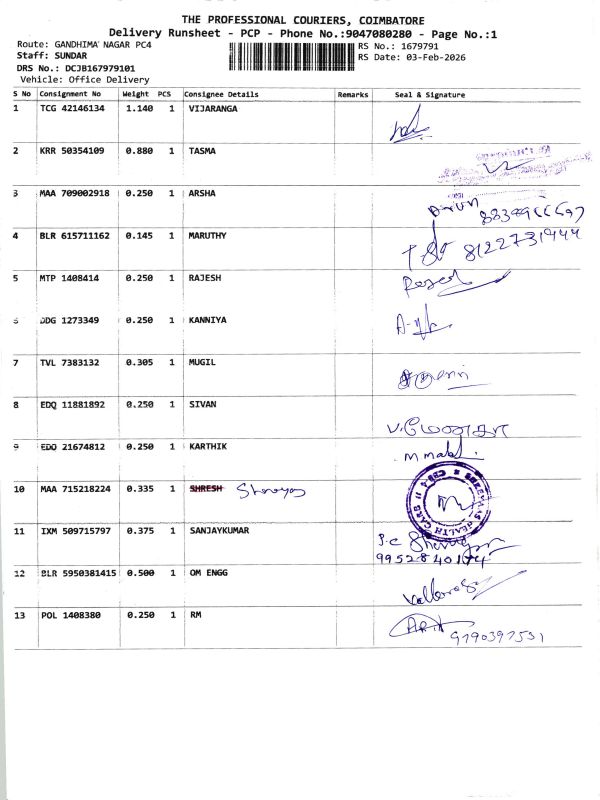 THE PROFESSIONAL COURIERS, COIMBATORE
Delivery Runsheet - PCP - Phone No.:9047080280 - Page No.:1
Route: GANDHIMA NAGAR PC4
RS No.: 1679791
Staff: SUNDAR
RS Date: 03-Feb-2026
DRS No.: DCJB167979101
Vehicle: Office Delivery
S No Consignment No Weight PCS Consignee Details Remarks Seal & Signature
1 TCG 42146134 1.140 1 VIJARANGA
2 KRR 50354109 0.880 1 TASMA
3 MAA 709002918 0.250 1 ARSHA
4 BLR 615711162 0.145 1 MARUTHY
8122731444
5 MTP 1408414 0.250 1 RAJESH
6 DDG 1273349 0.250 1 KANNIYA
7 TVL 7383132 0.305 1 MUGIL
8 EDQ 11881892 0.250 1 SIVAN
ப.மேனகா
9 EDO 21674812 0.250 1 KARTHIK
10 MAA 715218224 0.335 1 SHRESH
11 IXM 509715797 0.375 1 SANJAYKUMAR
9952840174
12 BLR 5950381415 0.500 1 OM ENGG
13 POL 1408380 0.250 1 RM
9790397531